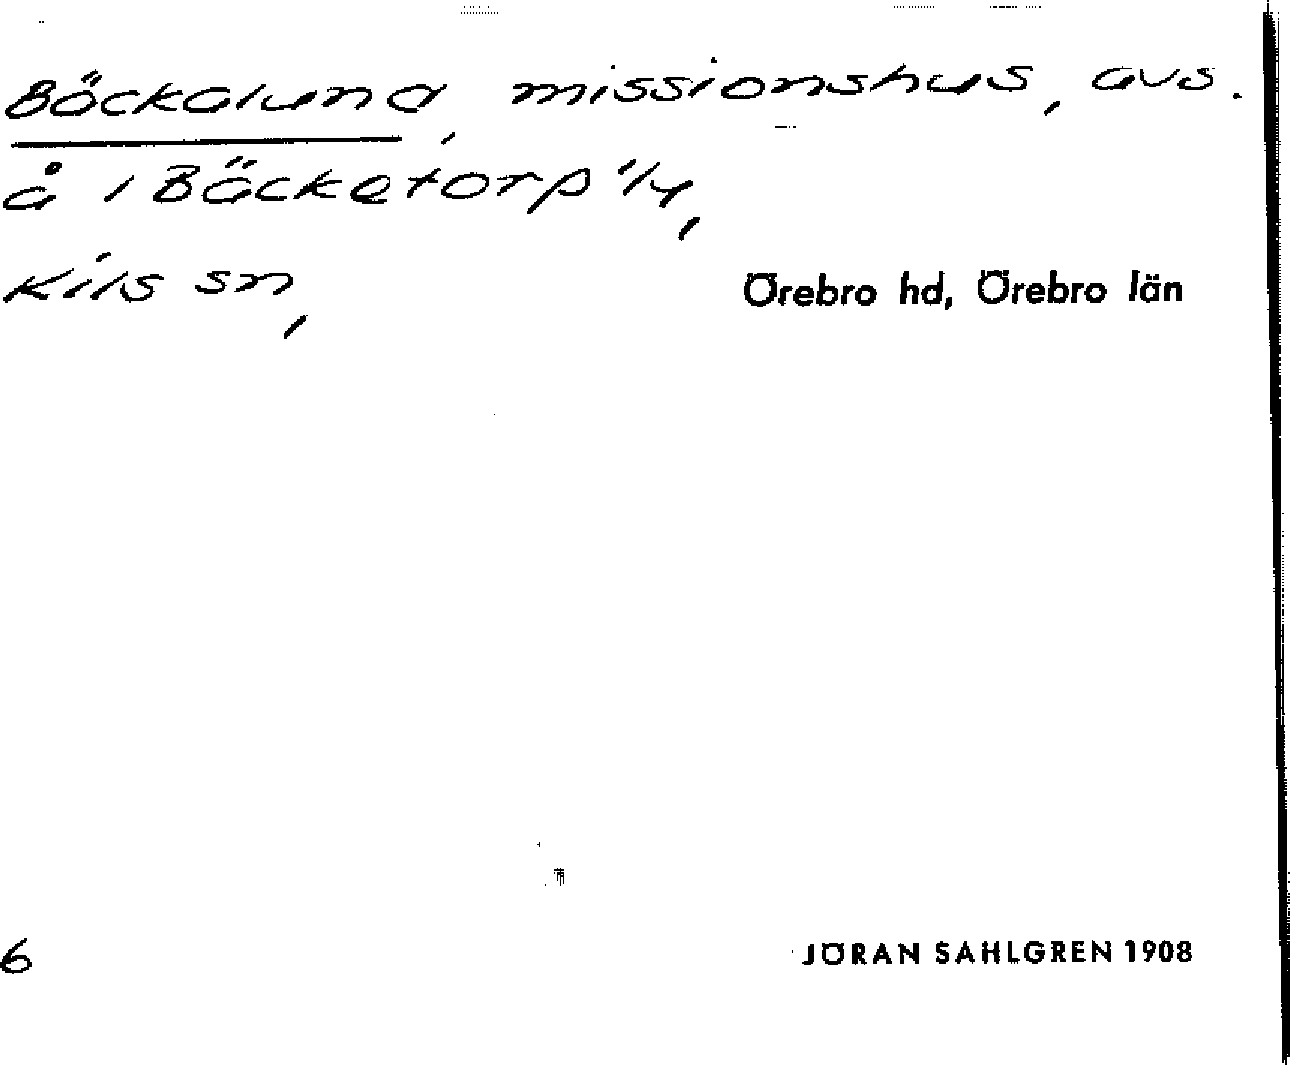 Bäckalund, missionshus, avs.
å 1 Bäcketorp 1/4,
Kils sn,
Örebro hd, Örebro län
6
JÖRAN SAHLGREN 1908